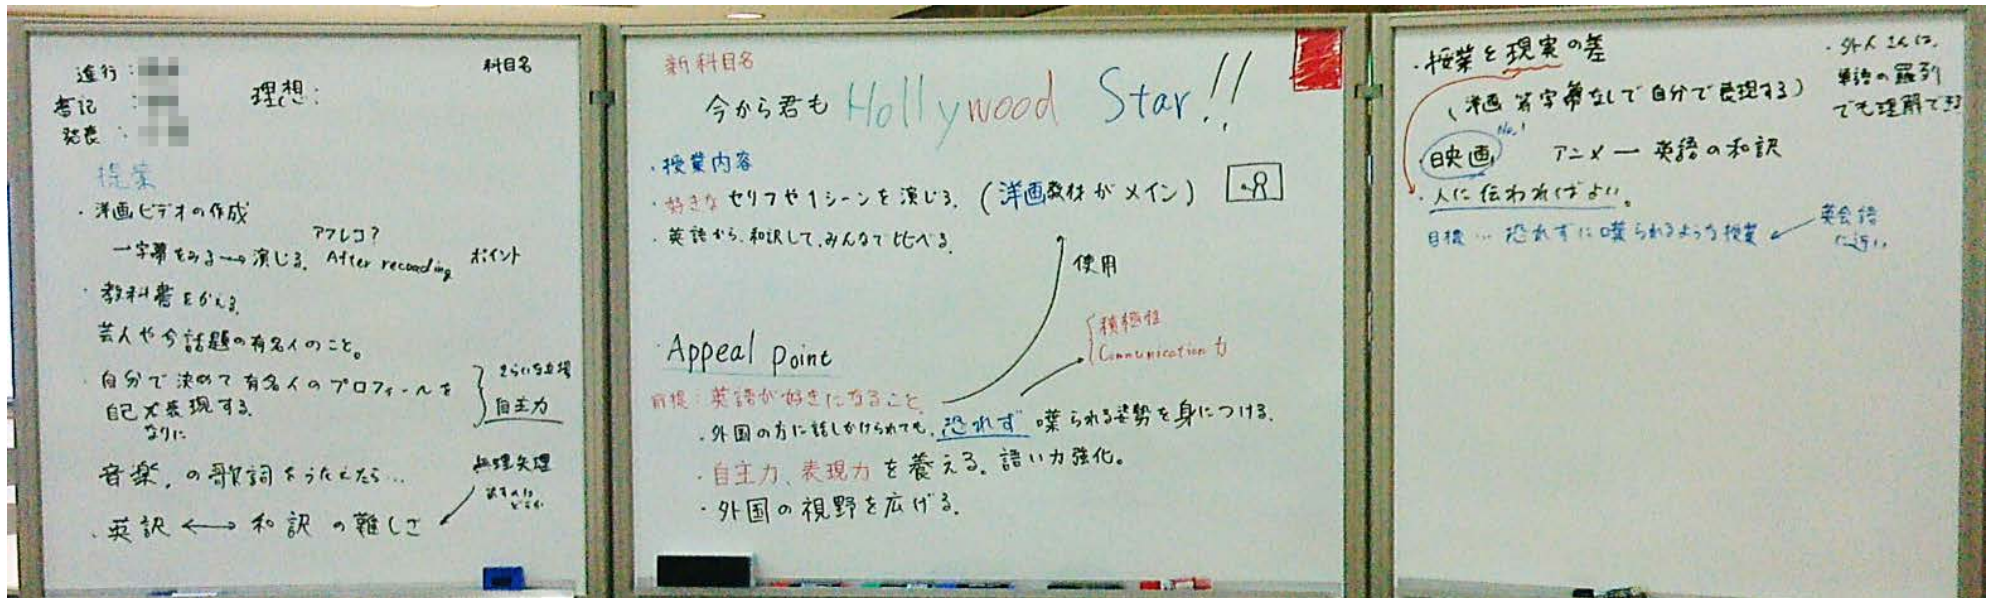 進行:
書記:
発表:
理想:
科目名
提案
・洋画ビデオの作成
アフレコ?
→字幕をみる→演じる。After recoading
ポイント
・教科書をかえる。
芸人や今話題の有名人のこと。
・自分で決めて有名人のプロフィールを
自己表現する。
なりに
自主力
音楽,の歌詞をうたえたら…
無理矢理
・英訳⟷和訳の難しさ
新科目名
今から君も Hollywood Star!!
・授業内容
・好きなセリフや1シーンを演じる。(洋画教材がメイン)
・英語から、和訳して、みんなで比べる。
使用
積極性
Communication力
Appeal Point
前提:英語が好きになること。
・外国の方に話しかけられても、恐れず喋られる姿勢を身につける。
・自主力、表現力を養える。語い力強化。
・外国の視野を広げる。
・授業と現実の差
(洋画 字幕なしで自分で表現する)
No.1
・映画 アニメ→英語の和訳
・人に伝わればよい。
目標…恐れずに喋られるような授業
英会話
に近い
・外人さんは、
単語の羅列
でも理解できる